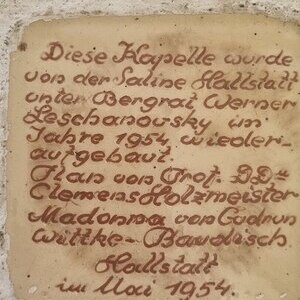 Diese Kapelle wurde
von der Saline Hallstatt
unter Bergrat Werner
Leschanovsky im
Jahre 1954 wieder-
aufgebaut.
Plan von Prof. DDr
Clemens Holzmeister
Madonna von Gudrun
Wittke-Baudisch
Hallstatt
im Mai 1954.